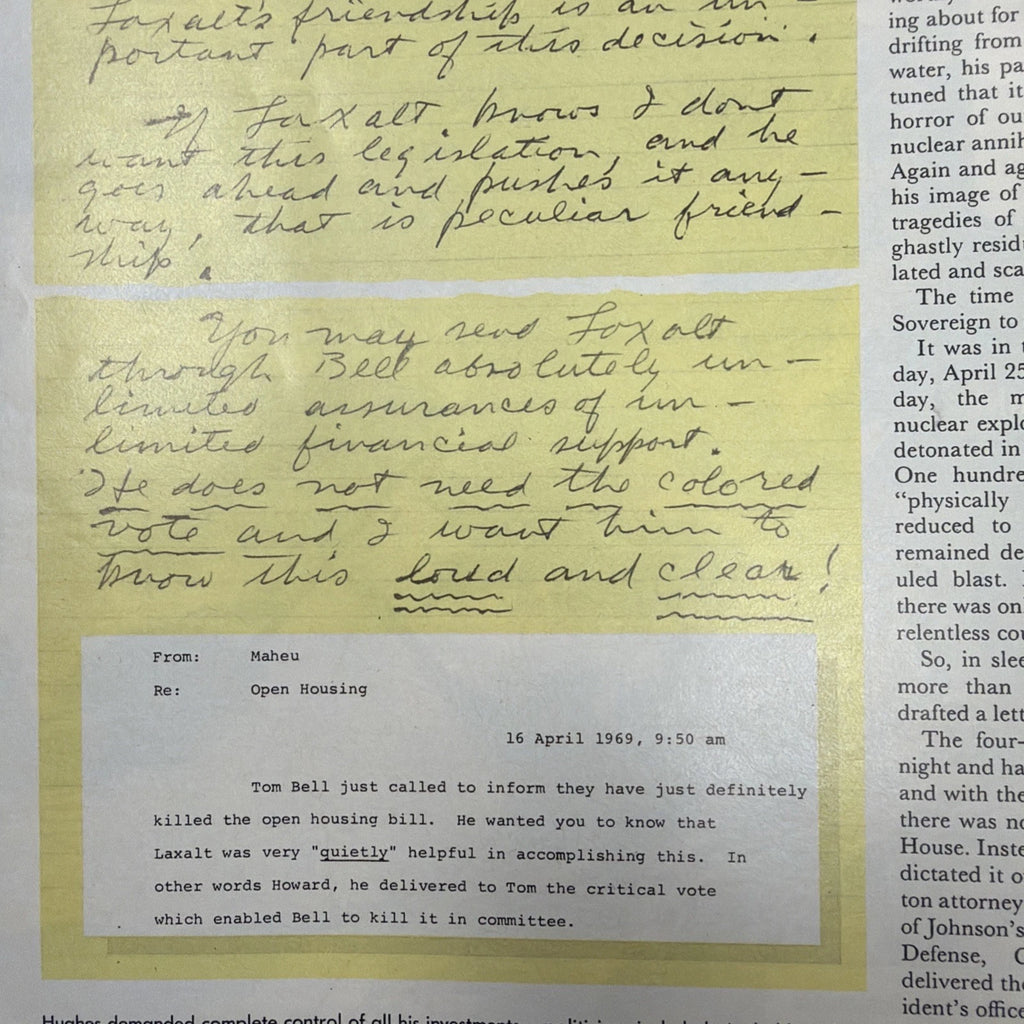 Laxalt's friendship is an im-
portant part of this decision.
If Laxalt knows I dont
want this legislation, and he
goes ahead and pushes it any-
way, that is peculiar friend-
ship.
You may send Laxalt
through Bell absolutely un-
limited assurances of un-
limited financial support.
He does not need the colored
vote and I want him to
know this loud and clear!
From: Maheu
Re: Open Housing
16 April 1969, 9:50 am
Tom Bell just called to inform they have just definitely
killed the open housing bill. He wanted you to know that
Laxalt was very "quietly" helpful in accomplishing this. In
other words Howard, he delivered to Tom the critical vote
which enabled Bell to kill it in committee.
Hughes demanded complete control of all his investments
ing about for
drifting from
water, his pa
tuned that it
horror of ou
nuclear annih
Again and ag
his image of
tragedies of
ghastly resid
lated and sca
The time
Sovereign to
It was in t
day, April 25
day, the m
nuclear explo
detonated in
One hundre
"physically
reduced to
remained de
uled blast.
there was on
relentless cou
So, in slee
more than
drafted a lett
The four-
night and ha
and with the
there was no
House. Inste
dictated it o
ton attorney
of Johnson's
Defense, C
delivered the
ident's office